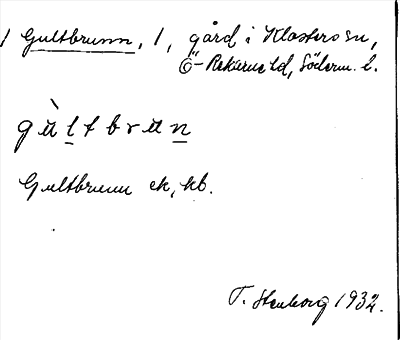 1 Gultbrunn, 1, gård i Klosters sn,
Ö-Rekarne hd, Söderm. l.
gùltbrun
Gultbrunn ek, kb.
T. Stenborg 1932.